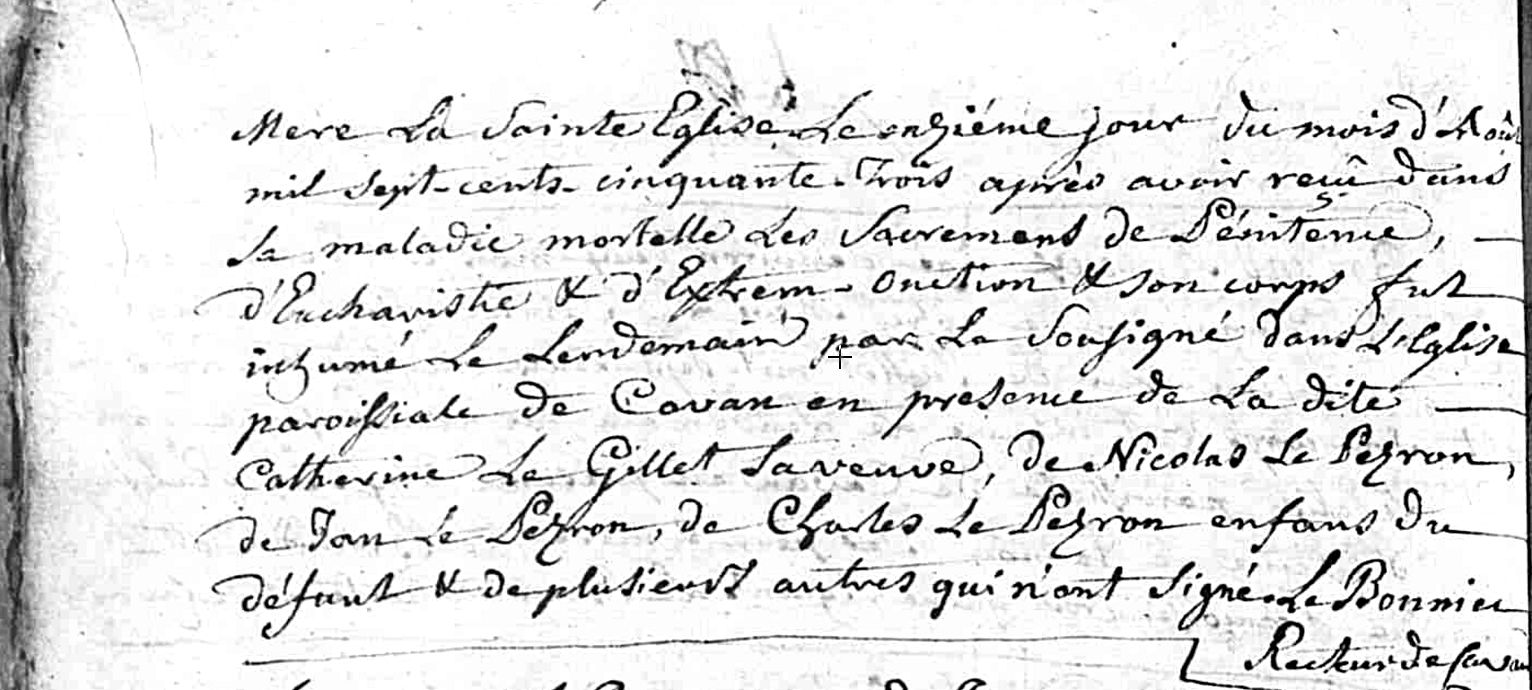 Mere La Sainte Eglise Le onziéme jour du mois d'Aoû
mil sept-cents-cinquante-Trois après avoir reçû dans
Sa maladie mortelle Les Sacremens de Pénitence,
d'Eucharistie & d'Extrem-Onction & son corps fut
inhumé Le Lendemain par Le Sousigné dans L'Eglise
paroissiale de Cavan en presence de La dite
Catherine Le Gillet Sa veuve, de Nicolas Le Pezron,
de Jan Le Pezron, de Charles Le Pezron enfans du
défunt & de plusieurs autres qui n'ont Signé. Le Bonniec
Recteur de Cavan